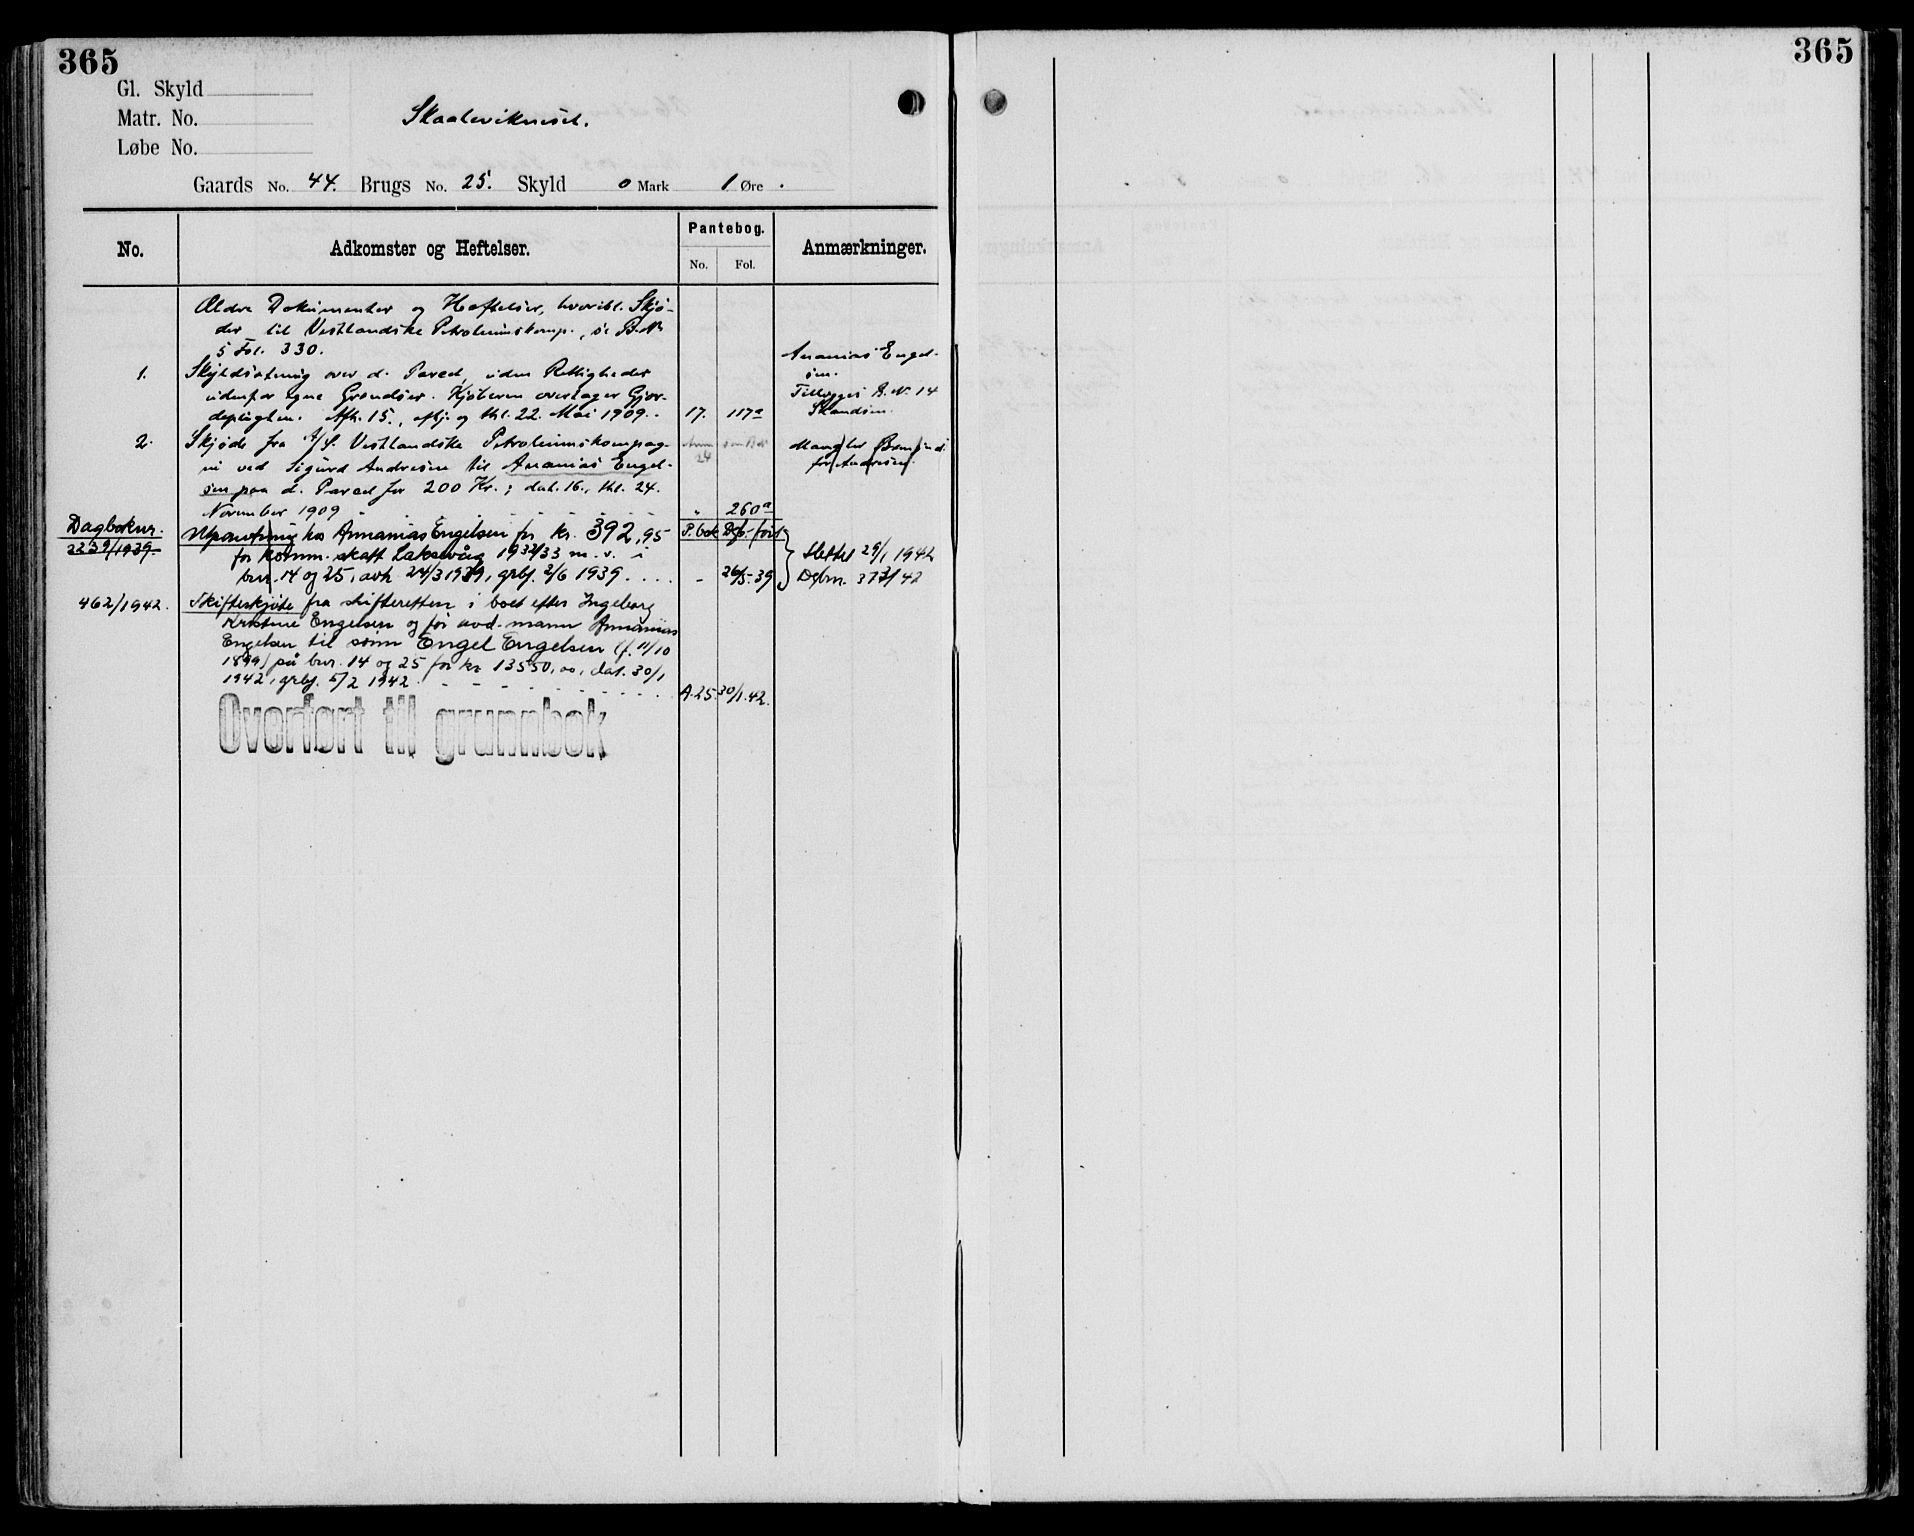 365
365
Gl. Skyld
Matr. No.
Skaaleviknæset.
Løbe No.
Gaards No. 44. Brugs No. 25. Skyld 0 Mark 1 Øre .
No. Adkomster og Heftelser. Pantebog. No. Fol. Anmærkninger.
Ældre Dokumenter og Heftelser, hvoribl. Skjø-
der til Vestlandske Petroleumskomp., se B. No
5 Fol. 330.
Ananias Engel-
sen.
Tillægges B. N. 14
1. Skyldsætning over d. Parcel, uden Rettigheder
udenfor egne Grændser. Kjøberen overtager Gjær-
depligten. Afh. 15., aflj. og thl. 22. Mai 1909. 17. 117a
2. Skjøde fra A/S. Vestlandske Petroleumskompag-
ni ved Sigurd Andresen til Ananias Engel-
sen paa d. Parcel for 200 Kr.; dat. 16., thl. 24.
November 1909 " 260a
Mangler
for Andresen.
Dagboknr. 2239/1939 Utpantning hos Annanias Engelsen for kr. 392,95 P. bok Dgb.-ført
for komm. skatt Laksevåg 1932/33 m. v. i
bnr. 14 og 25, avh. 24/3 1939, grbf. 2/6 1939. . . . - 26/5-39
Slettet 29/1 1942
Dgbnr. 373/42
462/1942. Skifteskjøte fra skifteretten i boet efter Ingeborg
Kristine Engelsen og før avd. mann Annanias
Engelsen til sønn Engel Engelsen (f. 11/10
1899) på bnr. 14 og 25 for kr 13550,00, dat. 30/1
1942, grbf. 5/2 1942. A.25. 30/1.42.
Overført til grunnbok